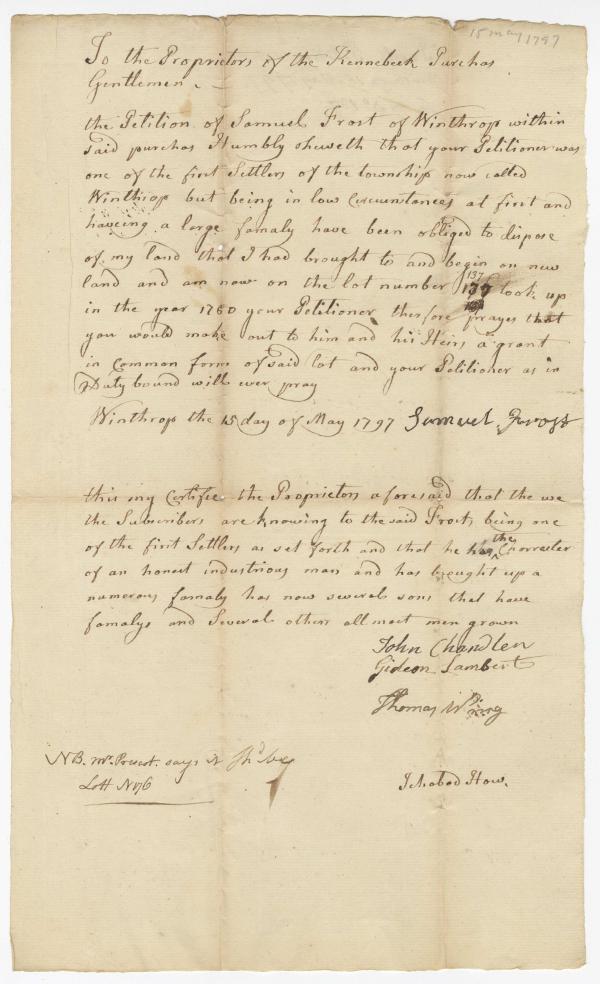 15 may 1797
To the Proprietors of the Kennebeck Purchas
Gentlemen
the Petition of Samuel Frost of Winthrop within
said purchas Humbly sheweth that your Petitioner was
one of the first Settlers of the township now called
Winthrop but being in low Circumstances at first and
haveing a large famaly have been obliged to dispose
of my land that I had brought to and begin on new
land and am now on the lot number 137
137 took up
in the year 1780 your Petitioner therfore prayes that
you would make out to him and his Heirs a grant
in Common form of said lot and your Petitioner as in
Duty bound will ever pray
Winthrop the 15 day of May 1797 Samuel Frost
this my Certifie the Proprietors aforesaid that the we
the Subscribers are knowing to the said Frosts being one
of the first Settlers as set forth and that he has the Charrecter
of an honest industrious man and has brought up a
numerous famaly has now several sons that have
famalys and Several others all most men grown
John Chandler
Gideon Lambert
Thomas Wing
NB. Mr. Prescot says it shd be
Lott N 176
Ichabod How.